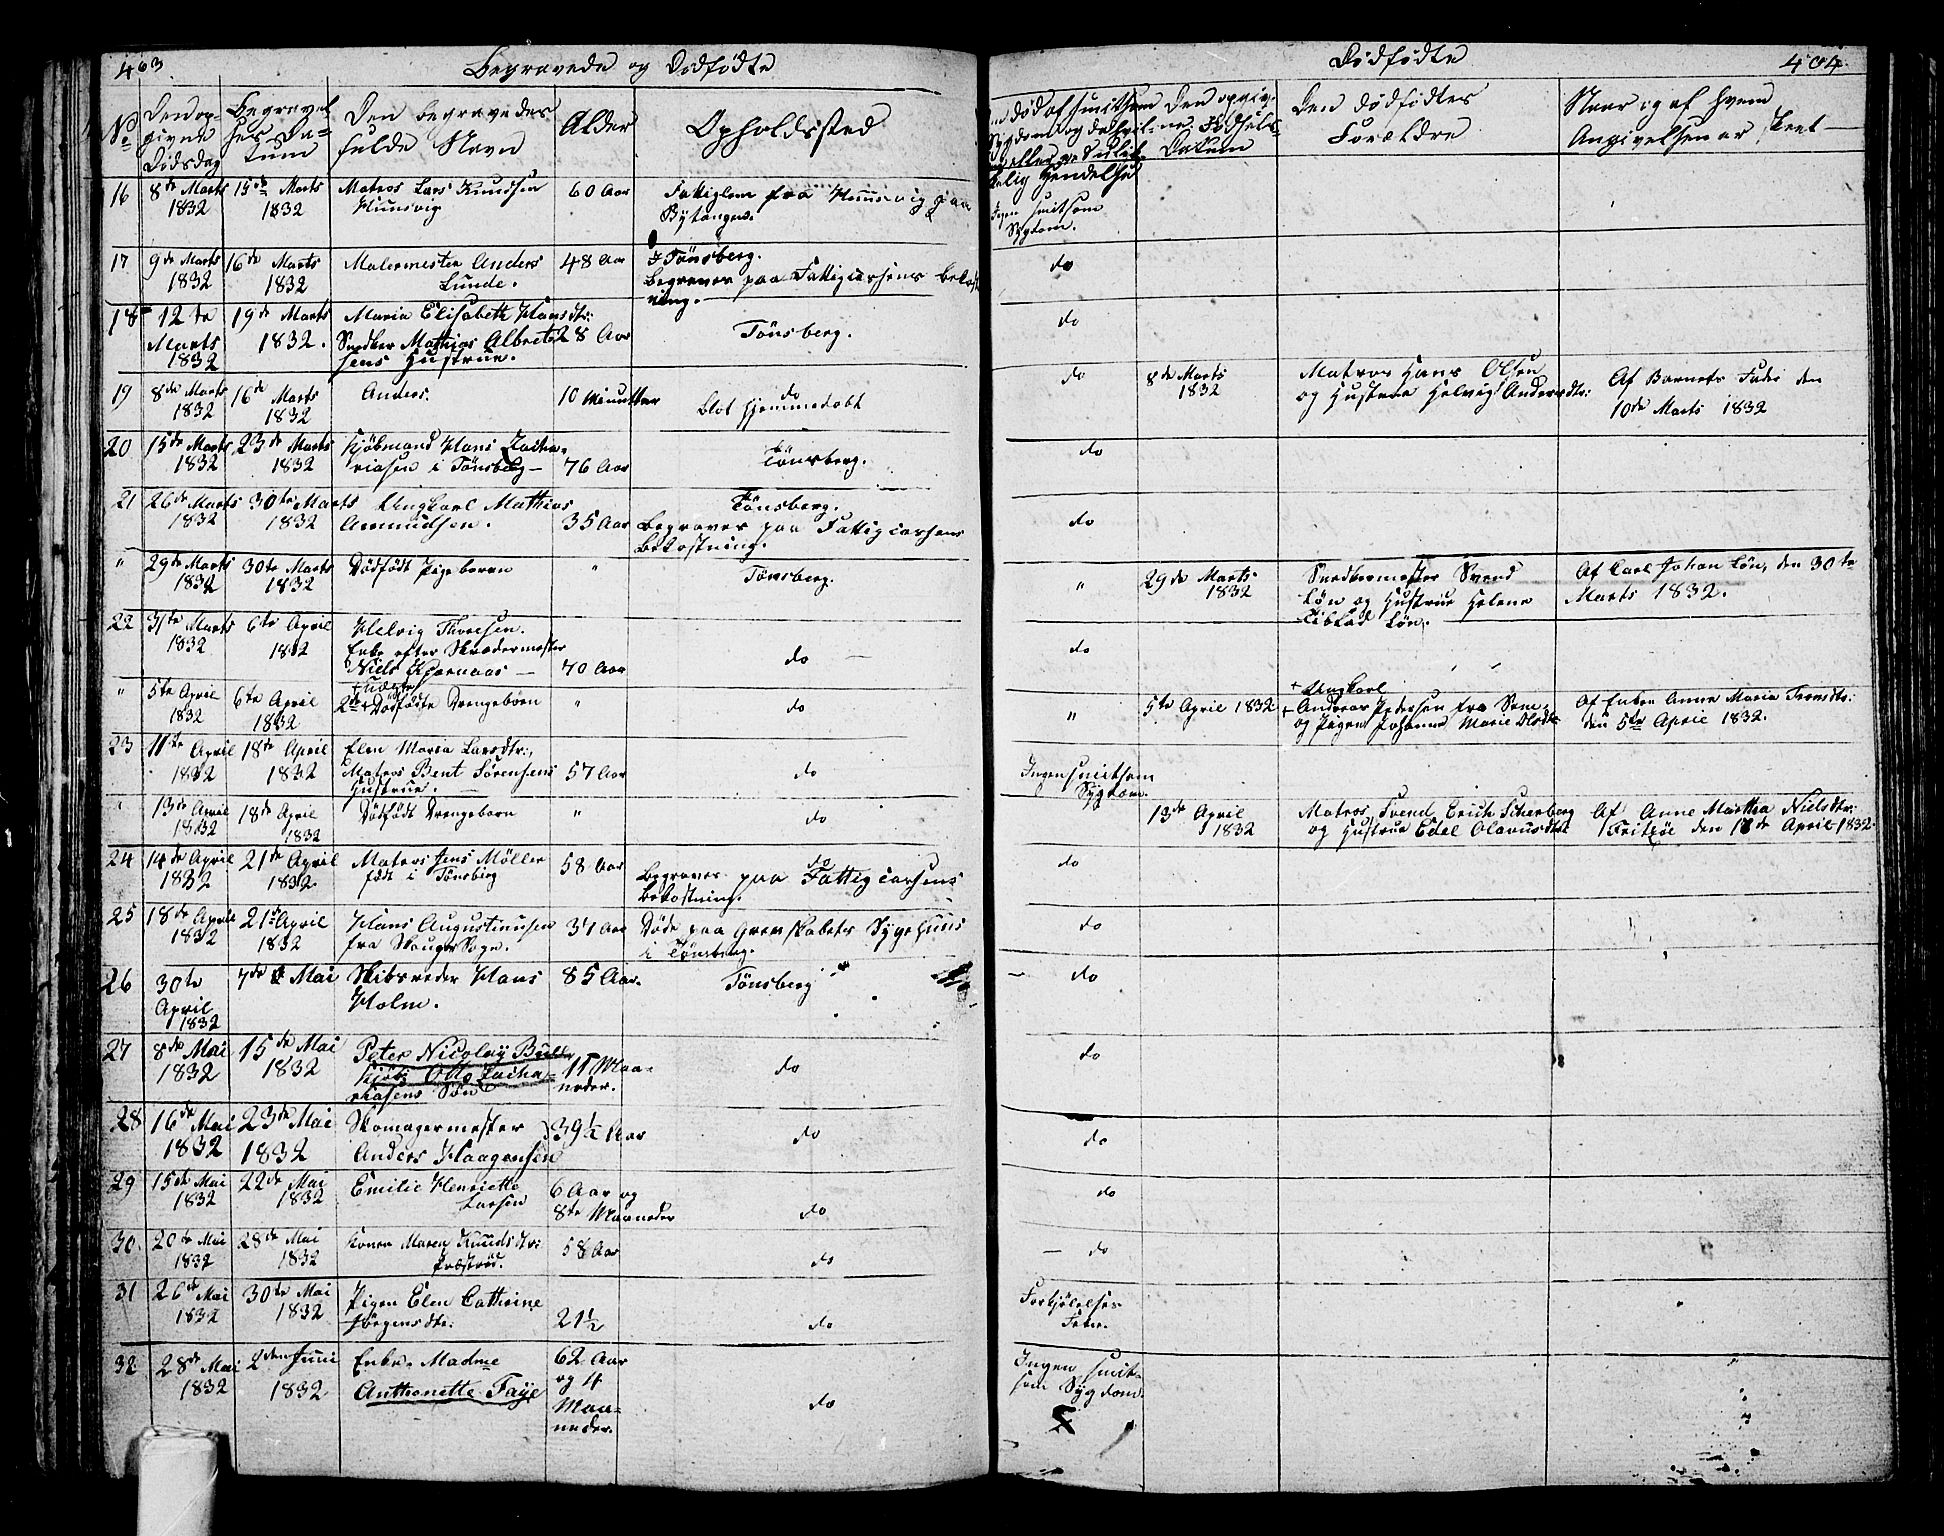 463
Begravede og Dødfødte
No
Den op-
givne
Dødsdag
Begravel-
ses Da-
tum
Den begravedes
fulde Navn
Alder
Opholdssted
16
8de Marts
1832
15de Marts
1832
Matros Lars Knudsen
Huusvig
60 Aar
Fattiglem fra Huusvig paa
Bytangen.
17
9de Marts
1832
16de Marts
1832
Malermester Anders
Lunde.
48 Aar
Tönsberg.
Begraves paa Fattigcassens Bekost
ning.
18
12te
Marts
1832
19de Marts
1832.
Maria Elisabeth Hansdtr:
Snedker Mathias Albret-
sens Hustrue.
28 Aar
Tönsberg.
19
8de Marts
1832
16de Marts
1832
Anders.
10 Minutter
do
blot hjemmedøbt
20
15de Marts
1832
23de Marts
1832
Kjöbmand Hans Zacha-
riasen i Tönsberg
76 Aar
Tönsberg.
21
26de Marts
1832
30te Marts
1832
Ungkarl Mathias
Amundsen.
35 Aar
Tönsberg.
Begraves paa Fattigcassens
Bekostning.
"
29de Marts
1832
30te Marts
1832
Dödfödt Pigebarn
"
Tönsberg.
22
31te Marts
1832
6te April
1832
Helvig Thoresen.
Enke efter Skrædermester
Niels Kjærnaas
70 Aar
do
"
5te April
1832
6te April
1832
+ uægte
2de + Dödfödte Drengebörn
"
do
23
11te April
1832
18de April
1832
Elen Maria Larsdtr:,
Matros Bent Sörensens
Hustrue.
57 Aar
do
"
13de April
1832
18de April
1832
Dödfödt Drengebarn
"
do
24
14de April
1832
21de April
1832
Matros Jens Möller
födt i Tönsberg
58 Aar
do
Begraves paa Fattigcassens
Bekostning.
25
18de April
1832
21de April
1832
Hans Augustinusen
fra Skouger Sogn.
37 Aar
Döde paa Grevskabets Sygehuus
i Tönsberg.
26
30te
April
1832
7de Mai
Skibsreder Hans
Holm.
85 Aar.
Tönsberg
27
8de Mai
1832
15de Mai
1832
Peter Nicolay Bull
Kjöb: Otto Zacha-
riasens Sön
11 Maa-
neder.
do
28
16de Mai
1832
23de Mai
1832
Skomagermester
Anders Haagensen
39½ Aar
do
29
15de Mai
1832
22de Mai
1832
Emilie Henriette
Larsen
6 Aar og
8te Maaneder
do
30
20de Mai
1832
28de Mai
1832
Konen Maren Knudsdtr:
58 Aar
do
31
26de Mai
1832
30te Mai
1832
Pigen Elen Cathrine
Jörgensdtr:
21½
do
32
28de Mai
1832
2den Juni
1832
Enke-Madme
Anthonette Faye
62 Aar
og 4
Maa-
neder.
do
Dödfödte
404
død af smitsom
Sygdom og
eller ved ulyk-
kelig Hændelse
Den opgiv-
ne Fødsels-
Datum
Den dödfödtes
Forældre
Naar og af hvem
Angivelsen er skeet
Ingen smitsom
Sygdom.
do
do
do
8de Marts
1832
Matros Hans Olsen
og Hustrue Helvig Andersdtr:
Af Barnets Fader den
10de Marts 1832
do
do
"
29de Marts
1832
Snedkermester Svend
Lön og Hustrue Helene
Lön.
Af Carl Johan Lön, den 30te
Marts 1832.
do
"
5te April 1832
+ Ungkarl
+ Andreas Pedersen fra Sem
og Pigen Johanne Marie Olsdtr
Af Enken Anne Maria
den 5te April 1832.
Ingen smitsom
Sygdom.
13de April
1832
Matros Svend Erich
og Hustrue Edel Olavusdtr
Af Anne Marthea Nielsdtr:
Fritzöe den 17de April 1832.
do
do
do
do
do
do
do
Forkjölelses
Feber.
Ingen smit-
som Sygdom